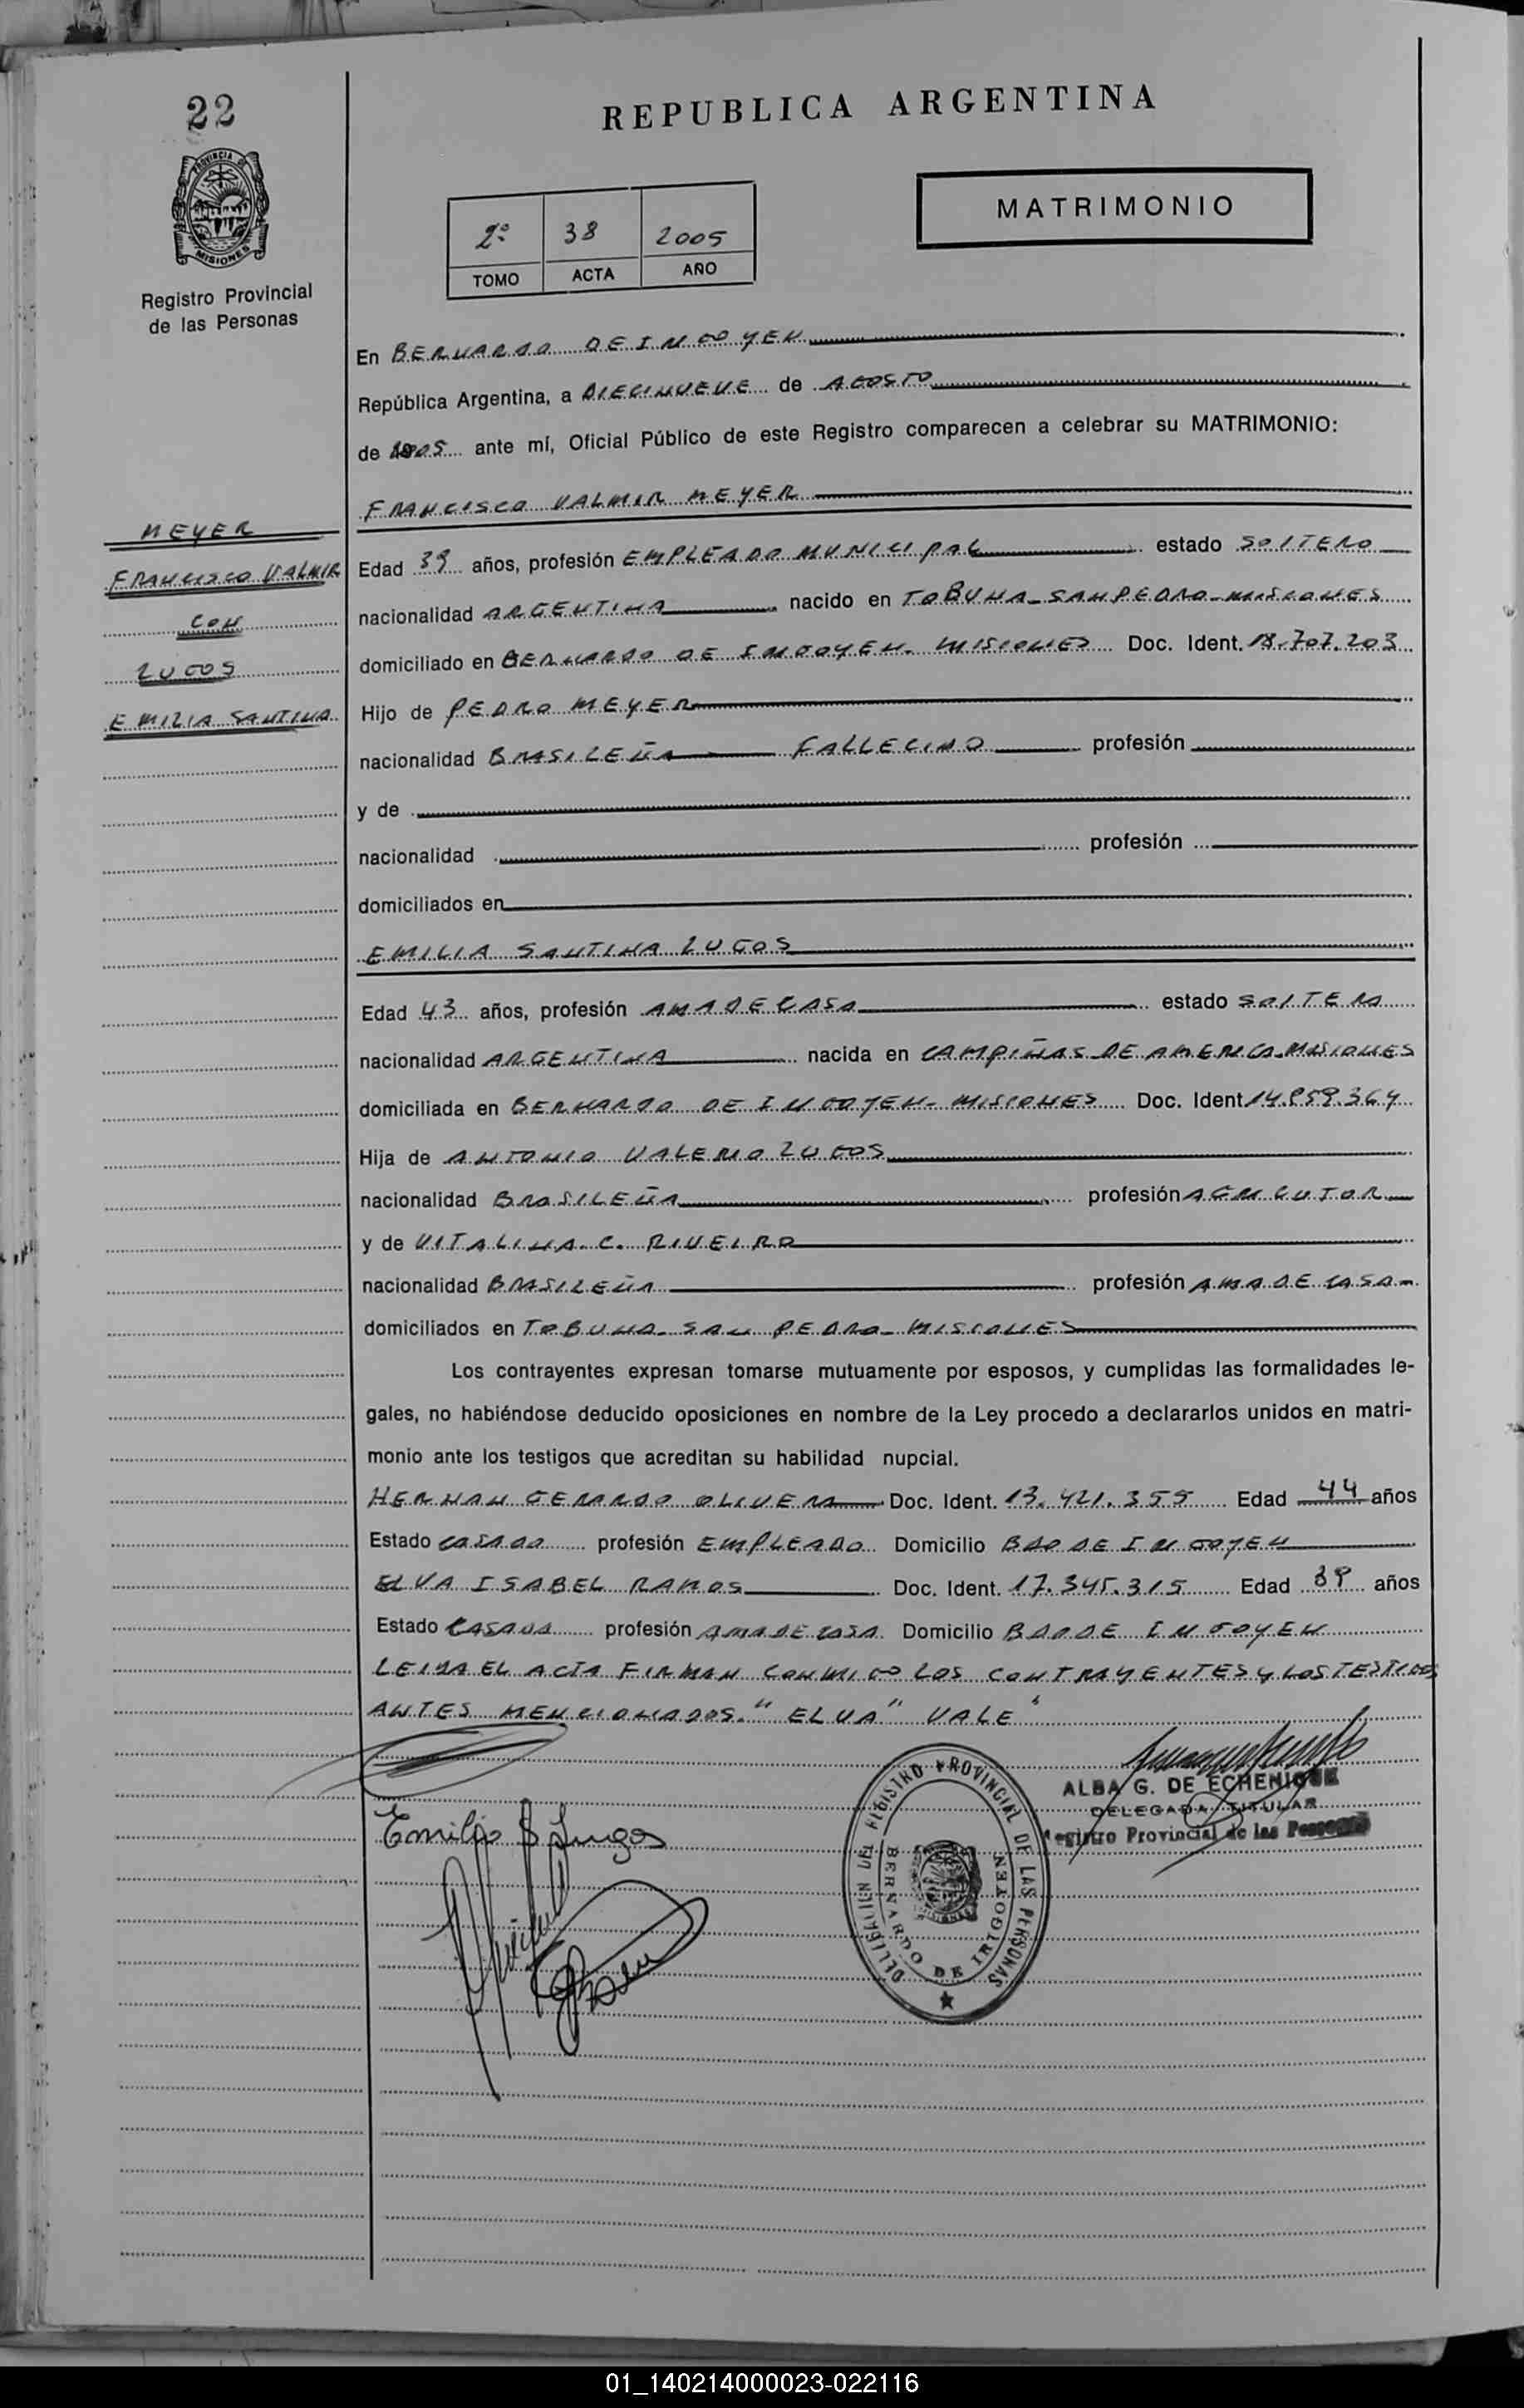 22
PROVINCIA DE
MISIONES
Registro Provincial
de las Personas
REPUBLICA ARGENTINA
MATRIMONIO
2º 38 2005
TOMO ACTA AÑO
En BERNARDO DE IRIGOYEN
República Argentina, a DIECINUEVE de AGOSTO
de 2005 ante mí, Oficial Público de este Registro comparecen a celebrar su MATRIMONIO:
FRANCISCO VALMIR MEYER
MEYER
FRANCISCO VALMIR
CON
LUGOS
EMILIA SANTINA
Edad 39 años, profesión EMPLEADO MUNICIPAL estado SOLTERO
nacionalidad ARGENTINA nacido en TOBUNA-SAN PEDRO-MISIONES
domiciliado en BERNARDO DE IRIGOYEN-MISIONES Doc. Ident. 18.707.203
Hijo de PEDRO MEYER
nacionalidad BRASILEÑA - FALLECIDO profesión
y de
nacionalidad profesión
domiciliados en
EMILIA SANTINA LUGOS
Edad 43 años, profesión AMA DE CASA estado SOLTERA
nacionalidad ARGENTINA nacida en CAMPIÑAS DE AMERICA-MISIONES
domiciliada en BERNARDO DE IRIGOYEN-MISIONES Doc. Ident 14.859.364
Hija de ANTONIO VALERIO LUGOS
nacionalidad BRASILEÑA profesión AGRICUTOR
y de VITALINA C. RIVEIRO
nacionalidad BRASILEÑA profesión AMA DE CASA
domiciliados en TOBUNA-SAN PEDRO-MISIONES
Los contrayentes expresan tomarse mutuamente por esposos, y cumplidas las formalidades le-
gales, no habiéndose deducido oposiciones en nombre de la Ley procedo a declararlos unidos en matri-
monio ante los testigos que acreditan su habilidad nupcial.
HERNAN GERARDO OLIVERA Doc. Ident. 13.421.359 Edad 44 años
Estado CASADO profesión EMPLEADO Domicilio BDO DE IRIGOYEN
ELVA ISABEL RAMOS Doc. Ident. 17.345.315 Edad 39 años
Estado CASADA profesión AMA DE CASA Domicilio BDO DE IRIGOYEN
LEIDA EL ACTA FIRMAN CONMIGO LOS CONTRAYENTES Y LOS TESTIGOS
ANTES MENCIONADOS. "ELVA" VALE
Emilia S Lugos
ALBA G. DE ECHENIQUE
DELEGADA TITULAR
Registro Provincial de las Personas
DELEGACION DEL REGISTRO PROVINCIAL DE LAS PERSONAS
BERNARDO DE IRIGOYEN
01_140214000023-022116